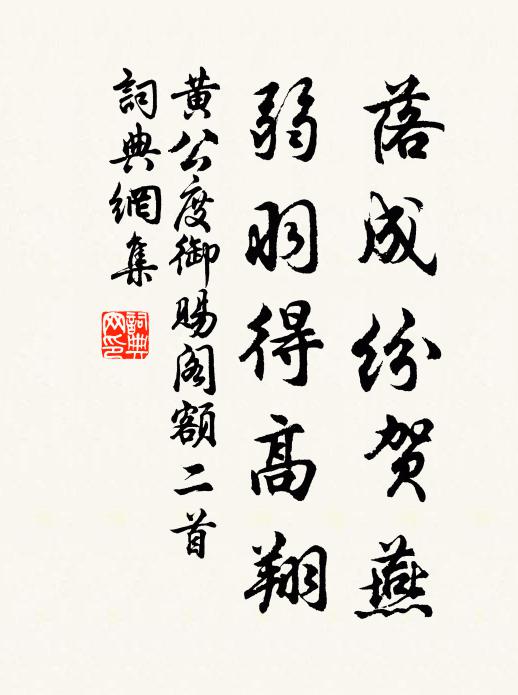 落成纷贺燕
弱羽得高翔
黄公度御賜阁額二首
詞典網集
詞典網印